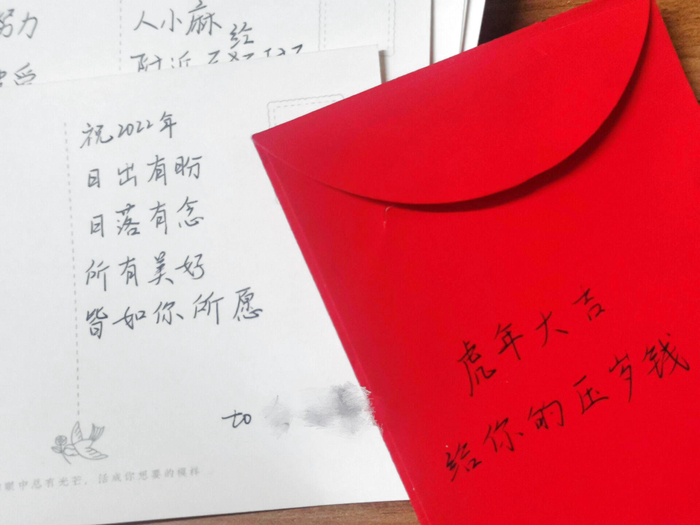 努力
人小麻
给
附近
祝2022年
日出有盼
日落有念
所有美好
皆如你所愿
to
眼中总有光芒，活成你想要的模样
虎年大吉
给你的压岁钱